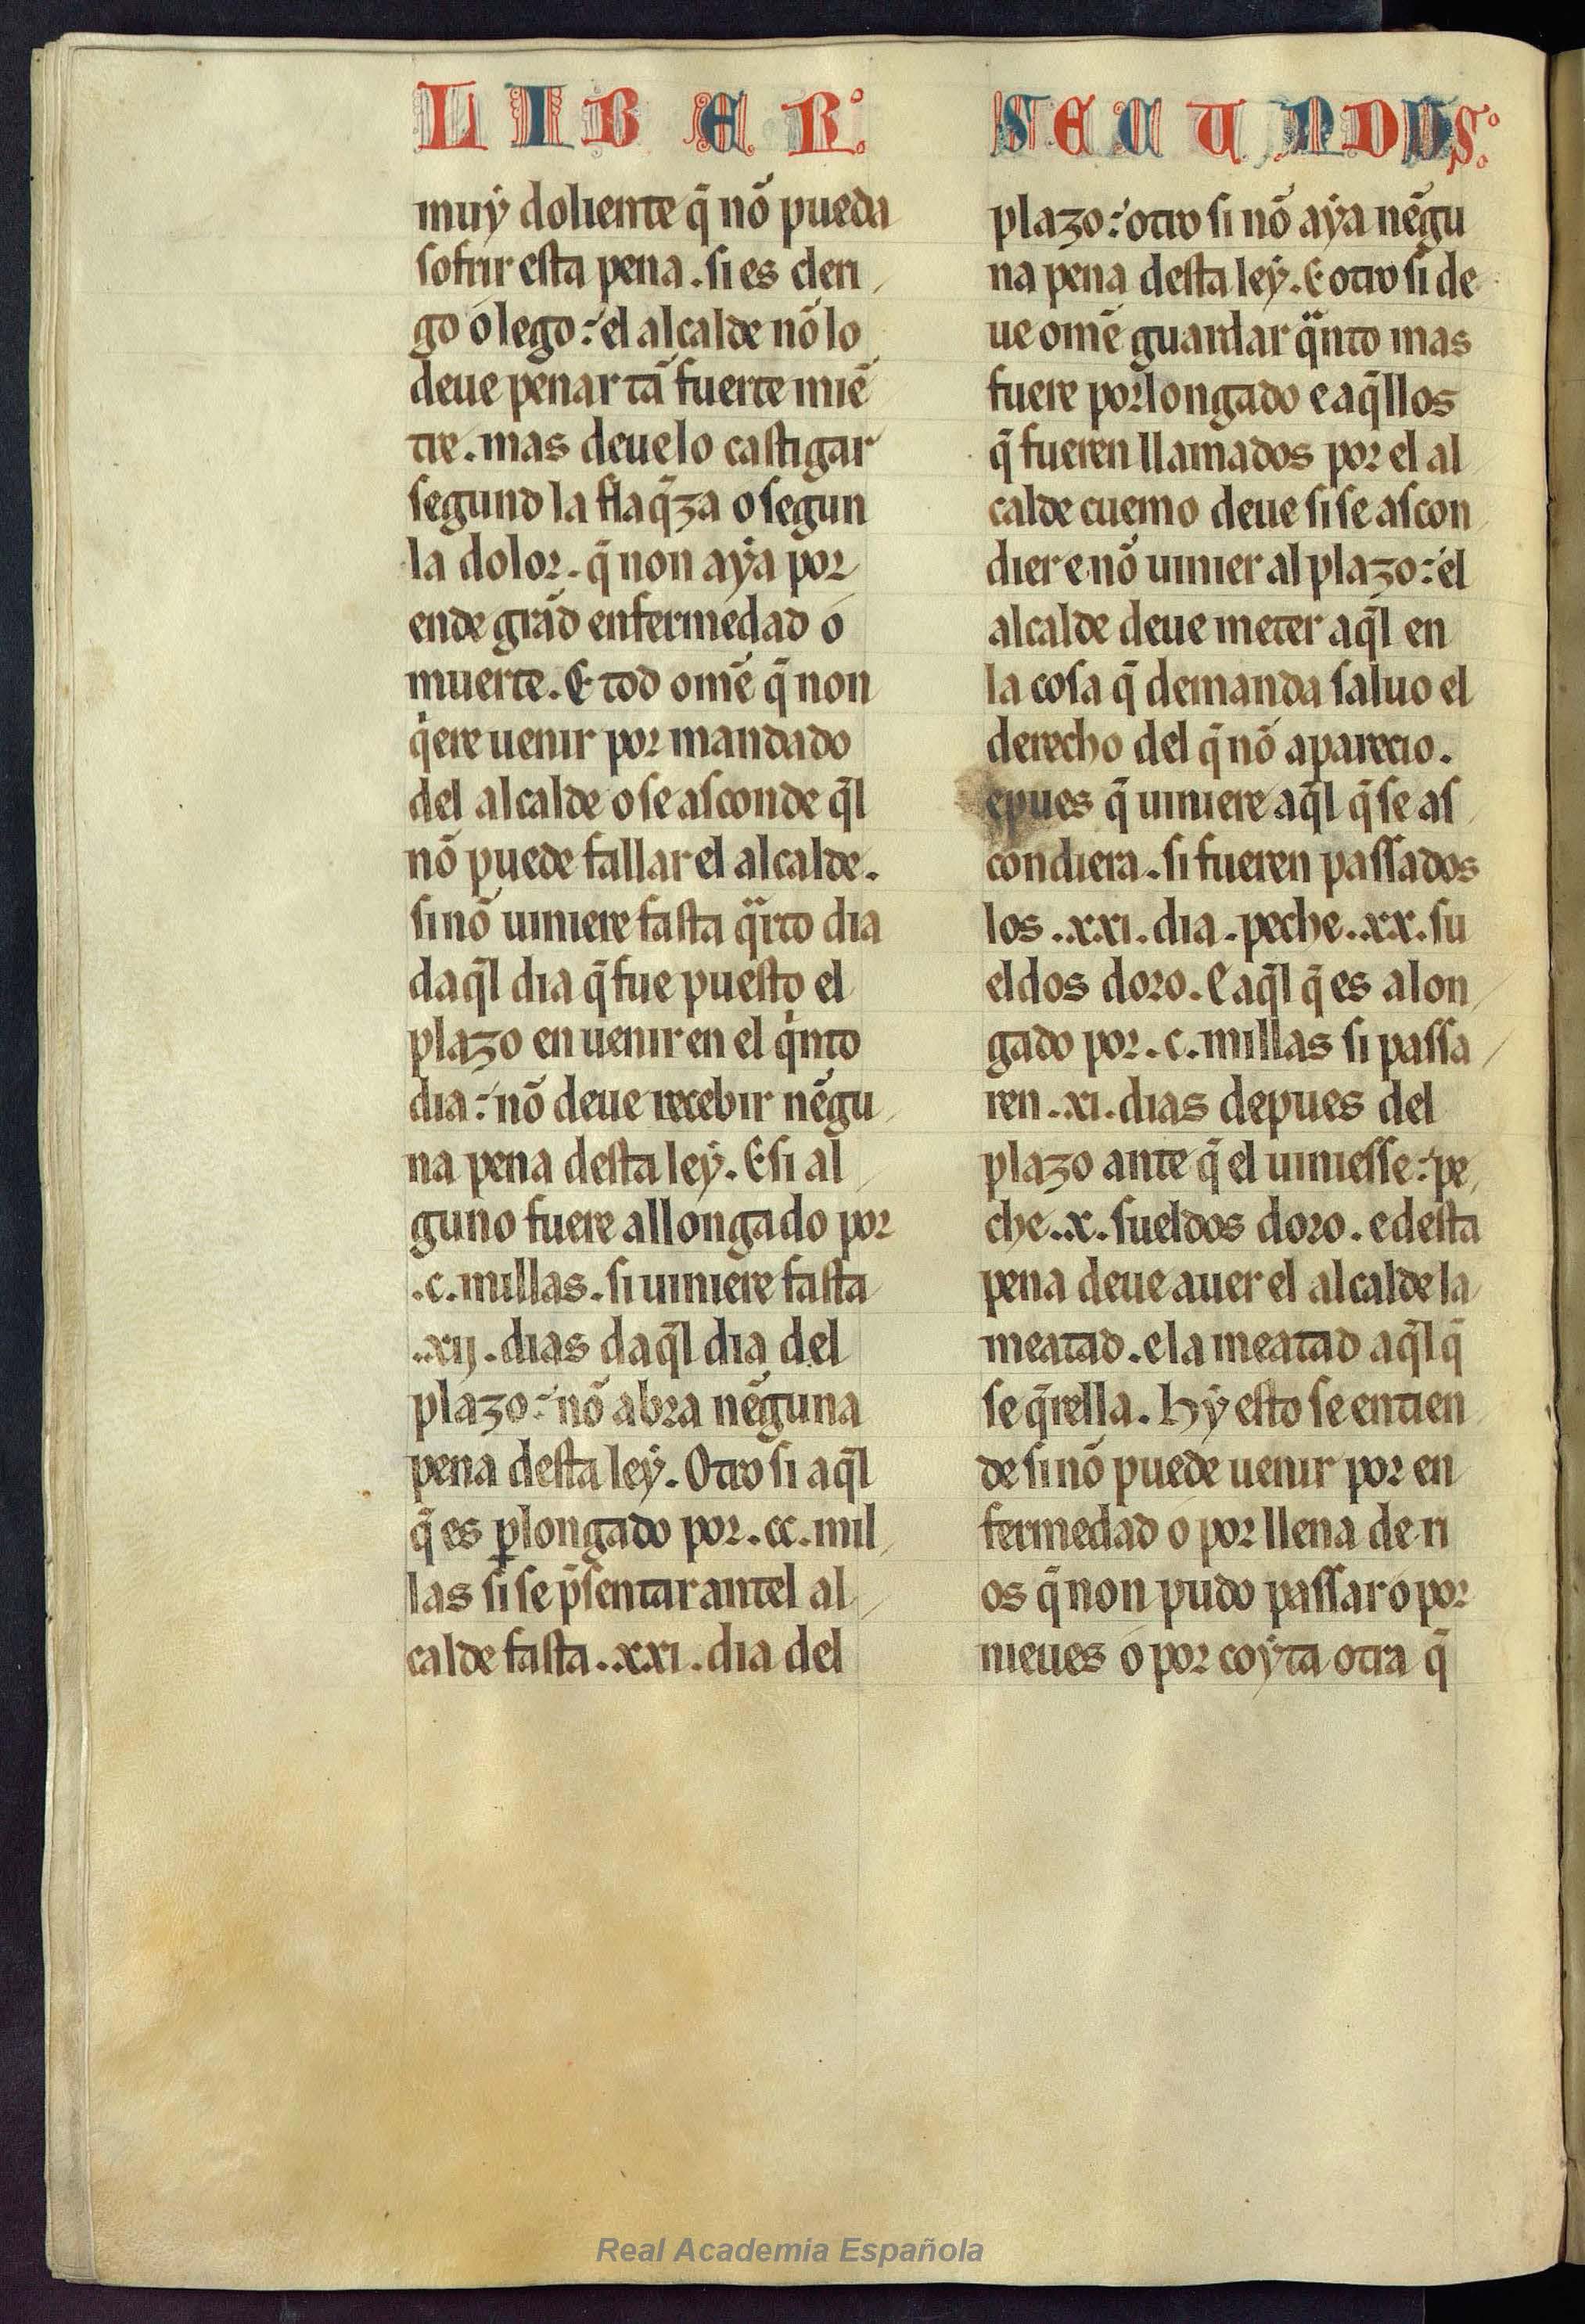 LIBER
muẏ doliente q̃ nõ pueda
sofrir esta pena. si es cleri
go o lego: el alcalde nõ lo
deue penar tã fuerte miẽ
tre. mas deuelo castigar
segund la flaq̃za o segun
la dolor. q̃ non aẏa por
ende grãd enfermedad o
muerte. E tod omẽ q̃ non
q̇ere uenir por mandado
del alcalde o se asconde q̃l
nõ puede fallar el alcalde.
si nõ uiniere fasta qȧrto dia
daq̃l dia q̃ fue puesto el
plazo en uenir en el q̇nto
dia: nõ deue recebir nẽgu
na pena desta leẏ. E si al
guno fuere allongado por
.c. millas. si uiniere fasta
.xij. dias daq̃l dia del
plazo: nõ abra nẽguna
pena desta leẏ. Otro si aq̃l
q̃ es ꝑlongado por .cc. mil
las si se p̃sentar antel al
calde fasta .xxi. dia del
SECUNDUS
plazo: otro si nõ aẏa nẽgu
na pena desta leẏ. E otro si de
ue omẽ guardar qȧnto mas
fuere porlongado e aq̃llos
q̃ fueren llamados por el al
calde cuemo deue si se ascon
dier e nõ uinier al plazo: el
alcalde deue meter aq̃l en
la cosa q̃ demanda saluo el
derecho del q̃ nõ aparecio.
epues q̃ uiniere aq̃l q̃ se as
condiera. si fueren passados
los .xxi. dia. peche .xx. su
eldos doro. E aq̃l q̃ es alon
gado por .c. millas si passa
ren .xi. dias depues del
plazo ante q̃ el uiniesse: pe
che .x. sueldos doro. e desta
pena deue auer el alcalde la
meatad. e la meatad aq̃l q̃
se q̃rella. hẏ esto se entien
de si nõ puede uenir por en
fermedad o por llena de ri
os q̃ non pudo passar o por
nieues o por coẏta otra q̃
Real Academia Española